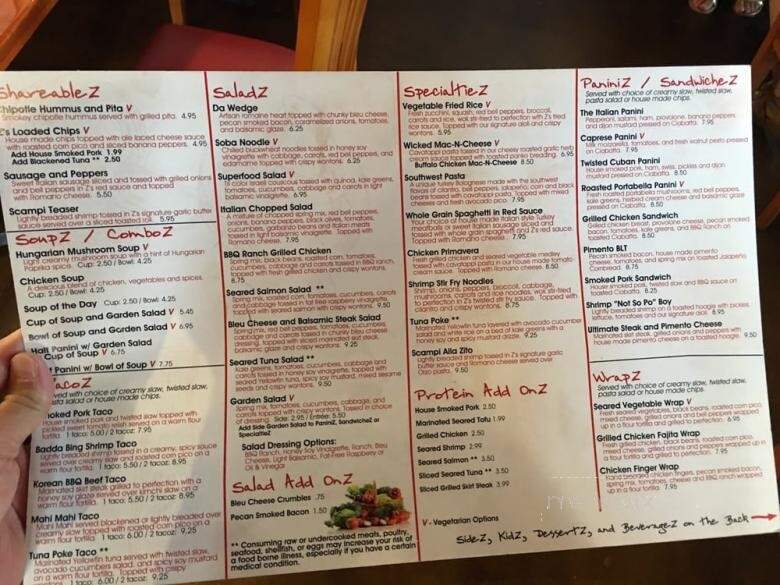 ShareableZ
Chipotle Hummus and Pita V
Smokey chipotle hummus served with grilled pita. 4.95
Z's Loaded Chips V
House made chips topped with ale laced cheese sauce
with roasted corn pico and sliced banana peppers. 4.95
Add House Smoked Pork 1.99
Add Blackened Tuna ** 2.50
Sausage and Peppers
Sweet Italian sausage sliced and tossed with grilled onions
and bell peppers in Z's red sauce and topped
with Romano cheese. 5.50
Scampi Teaser
Lightly breaded shrimp tossed in Z's signature garlic butter
sauce served over a sliced toasted roll. 5.95
SoupZ / ComboZ
Hungarian Mushroom Soup V
Light creamy mushroom soup with a hint of Hungarian
Paprika spice. Cup: 2.50 / Bowl: 4.25
Chicken Soup
A delicious blend of chicken, vegetables and spices.
Cup: 2.50 / Bowl: 4.25
Soup of the Day Cup: 2.50 / Bowl: 4.25
Cup of Soup and Garden Salad V 5.45
Bowl of Soup and Garden Salad V 6.95
Half Panini w/ Garden Salad
Cup of Soup V 6.75
Panini w/ Bowl of Soup V 7.75
TacoZ
Served with choice of creamy slaw, twisted slaw,
pasta salad or house made chips.
Smoked Pork Taco
House smoked pork and twisted slaw topped with
pickled sweet tomato relish served on a warm
flour tortilla. 1 taco: 5.00 / 2 taco: 7.95
Badda Bing Shrimp Taco
Lightly breaded shrimp tossed in a creamy, spicy sauce
served over creamy slaw and roasted corn pico on a
warm flour tortilla. 1 taco: 5.50 / 2 taco: 8.95
Korean BBQ Beef Taco
Marinated skirt steak grilled to perfection with a
honey soy glaze served over kimchi slaw on a
warm flour tortilla. 1 taco: 5.50 / 2 taco: 8.95
Mahi Mahi Taco
Mahi Mahi served blackened or lightly breaded over
creamy slaw topped with roasted corn pico on a
warm flour tortilla. 1 taco: 6.00 / 2 taco: 9.25
Tuna Poke Taco **
Marinated Yellowfin tuna served with twisted slaw,
avocado cucumber salad, and spicy soy mustard
on a warm flour tortilla. Topped with crispy
wontons. 1 taco: 6.00 / 2 taco: 9.25
SaladZ
Da Wedge
Artisan romaine heart topped with chunky bleu cheese,
pecan smoked bacon, caramelized onions, tomatoes,
and balsamic glaze. 6.25
Soba Noodle V
Chilled buckwheat noodles tossed in honey soy
vinaigrette with cabbage, carrots, red bell peppers, and
edamame topped with crispy wontons. 6.25
Superfood Salad V
Tri color Israeli couscous tossed with quinoa, kale greens,
tomatoes, cucumbers, cabbage and carrots in light
balsamic vinaigrette. 6.95
Italian Chopped Salad
A mixture of chopped spring mix, red bell peppers,
onions, banana peppers, black olives, tomatoes,
cucumbers, garbanzo beans and Italian meats
tossed in light balsamic vinaigrette. Topped with
Romano cheese. 7.95
BBQ Ranch Grilled Chicken
Spring mix, black beans, roasted corn, tomatoes,
cucumbers, cabbage and carrots tossed in BBQ ranch,
topped with fresh grilled chicken and crispy wontons.
8.75
Seared Salmon Salad **
Spring mix, roasted corn, tomatoes, cucumbers, carrots
and cabbage tossed in fat free raspberry vinaigrette,
topped with seared salmon with crispy wontons. 9.50
Bleu Cheese and Balsamic Steak Salad
Spring mix, red bell peppers, tomatoes, cucumbers,
cabbage and carrots tossed in chunky bleu cheese
dressing, topped with sliced marinated skirt steak,
balsamic glaze and crispy wontons. 9.95
Seared Tuna Salad **
Kale greens, tomatoes, cucumbers, cabbage and
carrots tossed in honey soy vinaigrette, topped with
seared Yellowfin tuna, spicy soy mustard, mixed sesame
seeds and crispy wontons. 9.50
Garden Salad V
Spring mix, tomatoes, cucumbers, cabbage, and
carrots topped with crispy wontons. Tossed in choice
of dressing. Side: 2.95 / Entrée: 5.50
Add Side Garden Salad to PaniniZ, SandwicheZ or
SpecialtieZ
Salad Dressing Options:
BBQ Ranch, Honey Soy Vinaigrette, Ranch, Bleu
Cheese, Light Balsamic, Fat-Free Raspberry or
Oil & Vinegar
Salad Add OnZ
Bleu Cheese Crumbles .75
Pecan Smoked Bacon 1.50
** Consuming raw or undercooked meats, poultry,
seafood, shellfish, or eggs may increase your risk of
a food borne illness, especially if you have a certain
medical condition.
SpecialtieZ
Vegetable Fried Rice V
Fresh zucchini, squash, red bell peppers, broccoli,
carrots and rice, wok stir-fried to perfection with Z's fried
rice sauce. Topped with our signature aioli and crispy
wontons. 5.95
Wicked Mac-N-Cheese V
Cavatappi pasta tossed in our cheesy roasted garlic herb
cream sauce topped with toasted panko breading. 6.95
Buffalo Chicken Mac-N-Cheese 8.50
Southwest Pasta
A unique turkey Bolognese made with the southwest
flavors of cilantro, bell peppers, jalapeño, corn and black
beans tossed with cavatappi pasta. Topped with mixed
cheeses and fresh avocado pico. 7.95
Whole Grain Spaghetti in Red Sauce
Your choice of house made Italian style Turkey
meatballs or sweet Italian sausage sliced and
tossed with whole grain spaghetti and Z's red sauce.
Topped with Romano cheese. 7.95
Chicken Primavera
Fresh grilled chicken and seared vegetable medley
tossed with cavatappi pasta in our house made tomato-
cream sauce. Topped with Romano cheese. 8.50
Shrimp Stir Fry Noodles
Shrimp, onions, peppers, broccoli, cabbage,
mushrooms, carrots and rice noodles, wok stir-fried
to perfection in Z's twisted stir fry sauce. Topped with
cilantro and crispy wontons. 8.75
Tuna Poke **
Marinated Yellowfin tuna layered with avocado cucumber
salad and white rice on a bed of kale greens with a
honey soy and spicy mustard drizzle. 9.25
Scampi Alla Zito
Lightly breaded shrimp tossed in Z's signature garlic
butter sauce and Romano cheese served over
Orzo pasta. 9.50
Protein Add OnZ
House Smoked Pork 2.50
Marinated Seared Tofu 1.99
Grilled Chicken 2.50
Seared Shrimp 2.99
Seared Salmon ** 3.50
Sliced Seared Tuna ** 3.50
Sliced Grilled Skirt Steak 3.99
V - Vegetarian Options
PaniniZ / SandwicheZ
Served with choice of creamy slaw, twisted slaw,
pasta salad or house made chips.
The Italian Panini
Pepperoni, salami, ham, provolone, banana peppers
and dijon mustard pressed on Ciabatta. 7.95
Caprese Panini V
Milk mozzarella, tomatoes, and fresh walnut pesto pressed
on Ciabatta. 7.95
Twisted Cuban Panini
House smoked pork, ham, swiss, pickles and dijon
mustard pressed on Ciabatta. 8.50
Roasted Portabella Panini V
Fresh roasted portabella mushrooms, red bell peppers,
kale greens, herbed cream cheese and balsamic glaze
pressed on Ciabatta. 8.50
Grilled Chicken Sandwich
Grilled chicken breast, provolone cheese, pecan smoked
bacon, tomatoes, kale greens, and BBQ Ranch on
toasted Ciabatta. 8.50
Pimento BLT
Pecan smoked bacon, house made pimento
cheese, tomatoes, and spring mix on toasted Jalapeño
Cornbread. 8.75
Smoked Pork Sandwich
House smoked pork, twisted slaw and BBQ sauce on
toasted Ciabatta. 8.25
Shrimp "Not So Po" Boy
Lightly breaded shrimp on a toasted hoagie with pickles,
lettuce, tomatoes and our signature aioli. 8.95
Ultimate Steak and Pimento Cheese
Marinated skirt steak, grilled onions and peppers with
house made pimento cheese on a toasted hoagie. 9.50
WrapZ
Served with choice of creamy slaw, twisted slaw,
pasta salad or house made chips.
Seared Vegetable Wrap V
Fresh seared vegetables, black beans, roasted corn pico,
mixed cheese, grilled onions and bell peppers wrapped
up in a flour tortilla and grilled to perfection. 6.95
Grilled Chicken Fajita Wrap
Fresh grilled chicken, black beans, roasted corn pico,
mixed cheese, grilled onions and peppers all wrapped
up in a flour tortilla and grilled to perfection. 7.95
Chicken Finger Wrap
Hand breaded chicken fingers, pecan smoked bacon,
spring mix, tomatoes, cheese and BBQ ranch wrapped
up in a flour tortilla. 7.95
SideZ, KidZ, DessertZ, and BeverageZ on the Back